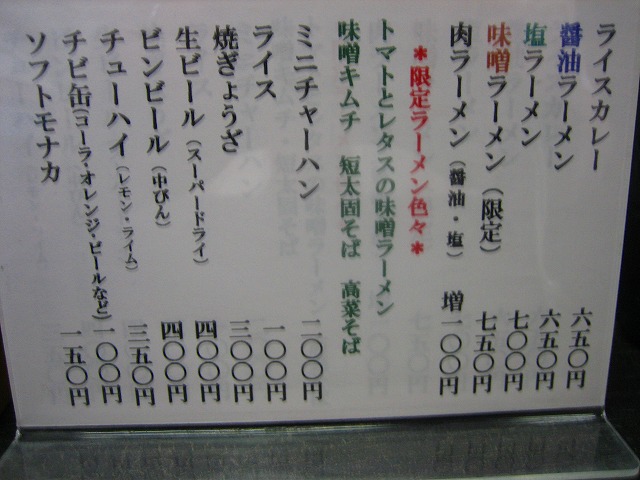 ライスカレー 六五〇円
醤油ラーメン 六五〇円
塩ラーメン 七〇〇円
味噌ラーメン（限定） 七五〇円
肉ラーメン（醤油・塩） 増一〇〇円
＊限定ラーメン色々＊
トマトとレタスの味噌ラーメン
味噌キムチ 短太固そば 高菜そば
ミニチャーハン 二〇〇円
ライス 一〇〇円
焼ぎょうざ 三〇〇円
生ビール（スーパードライ） 四〇〇円
ビンビール（中びん） 四〇〇円
チューハイ（レモン・ライム） 三五〇円
チビ缶（コーラ・オレンジ・ビールなど） 一〇〇円
ソフトモナカ 一五〇円